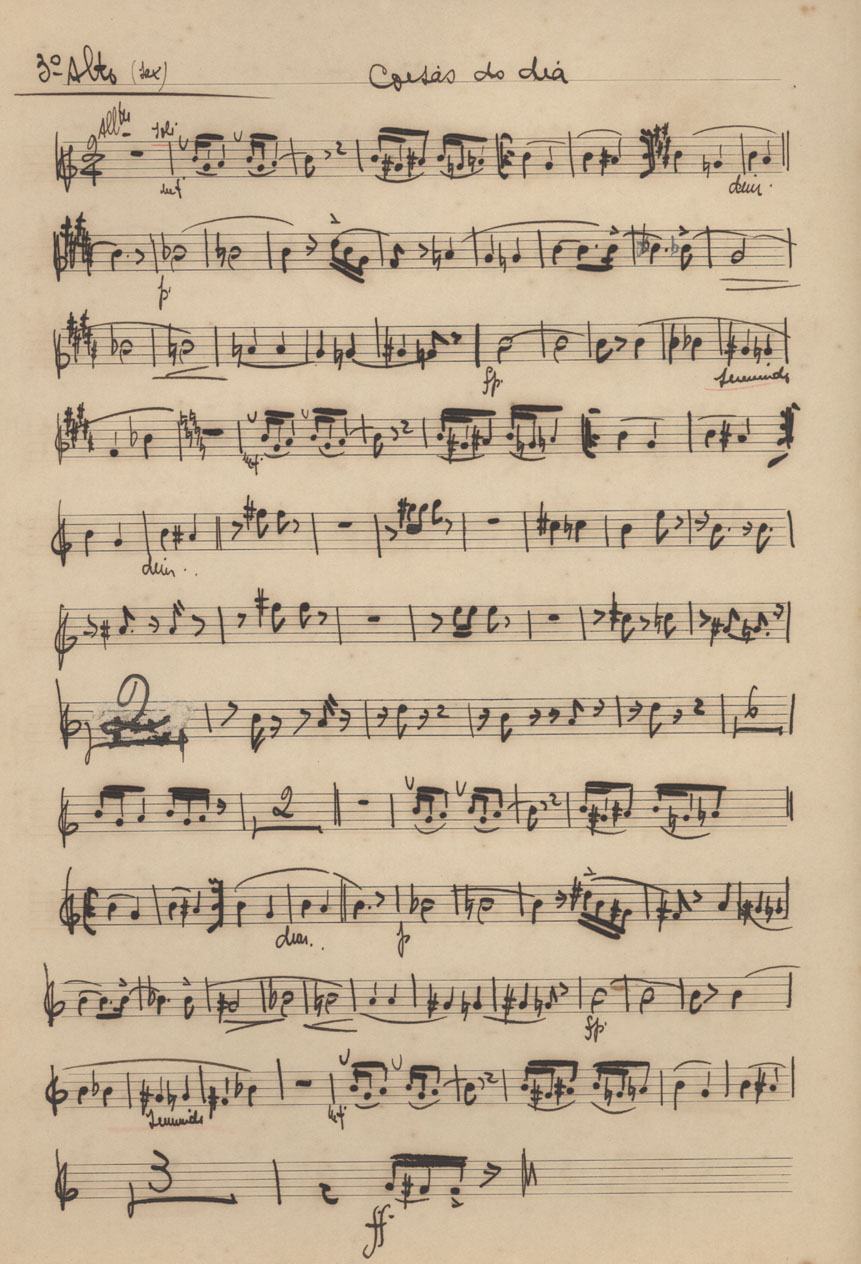 3º Alto (Sax) Coisas do dia
Allto Soli
mf dim.
p
fp.
mf.
dim..
2
6
2
dim.. p
fp.
mf.
3
ff.